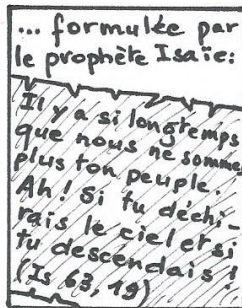 ... formulée par
le prophète Isaïe:
Il y a si longtemps
que nous ne sommes
plus ton peuple.
Ah! Si tu déchi-
rais le ciel et si
tu descendais!
(Is 63, 19)